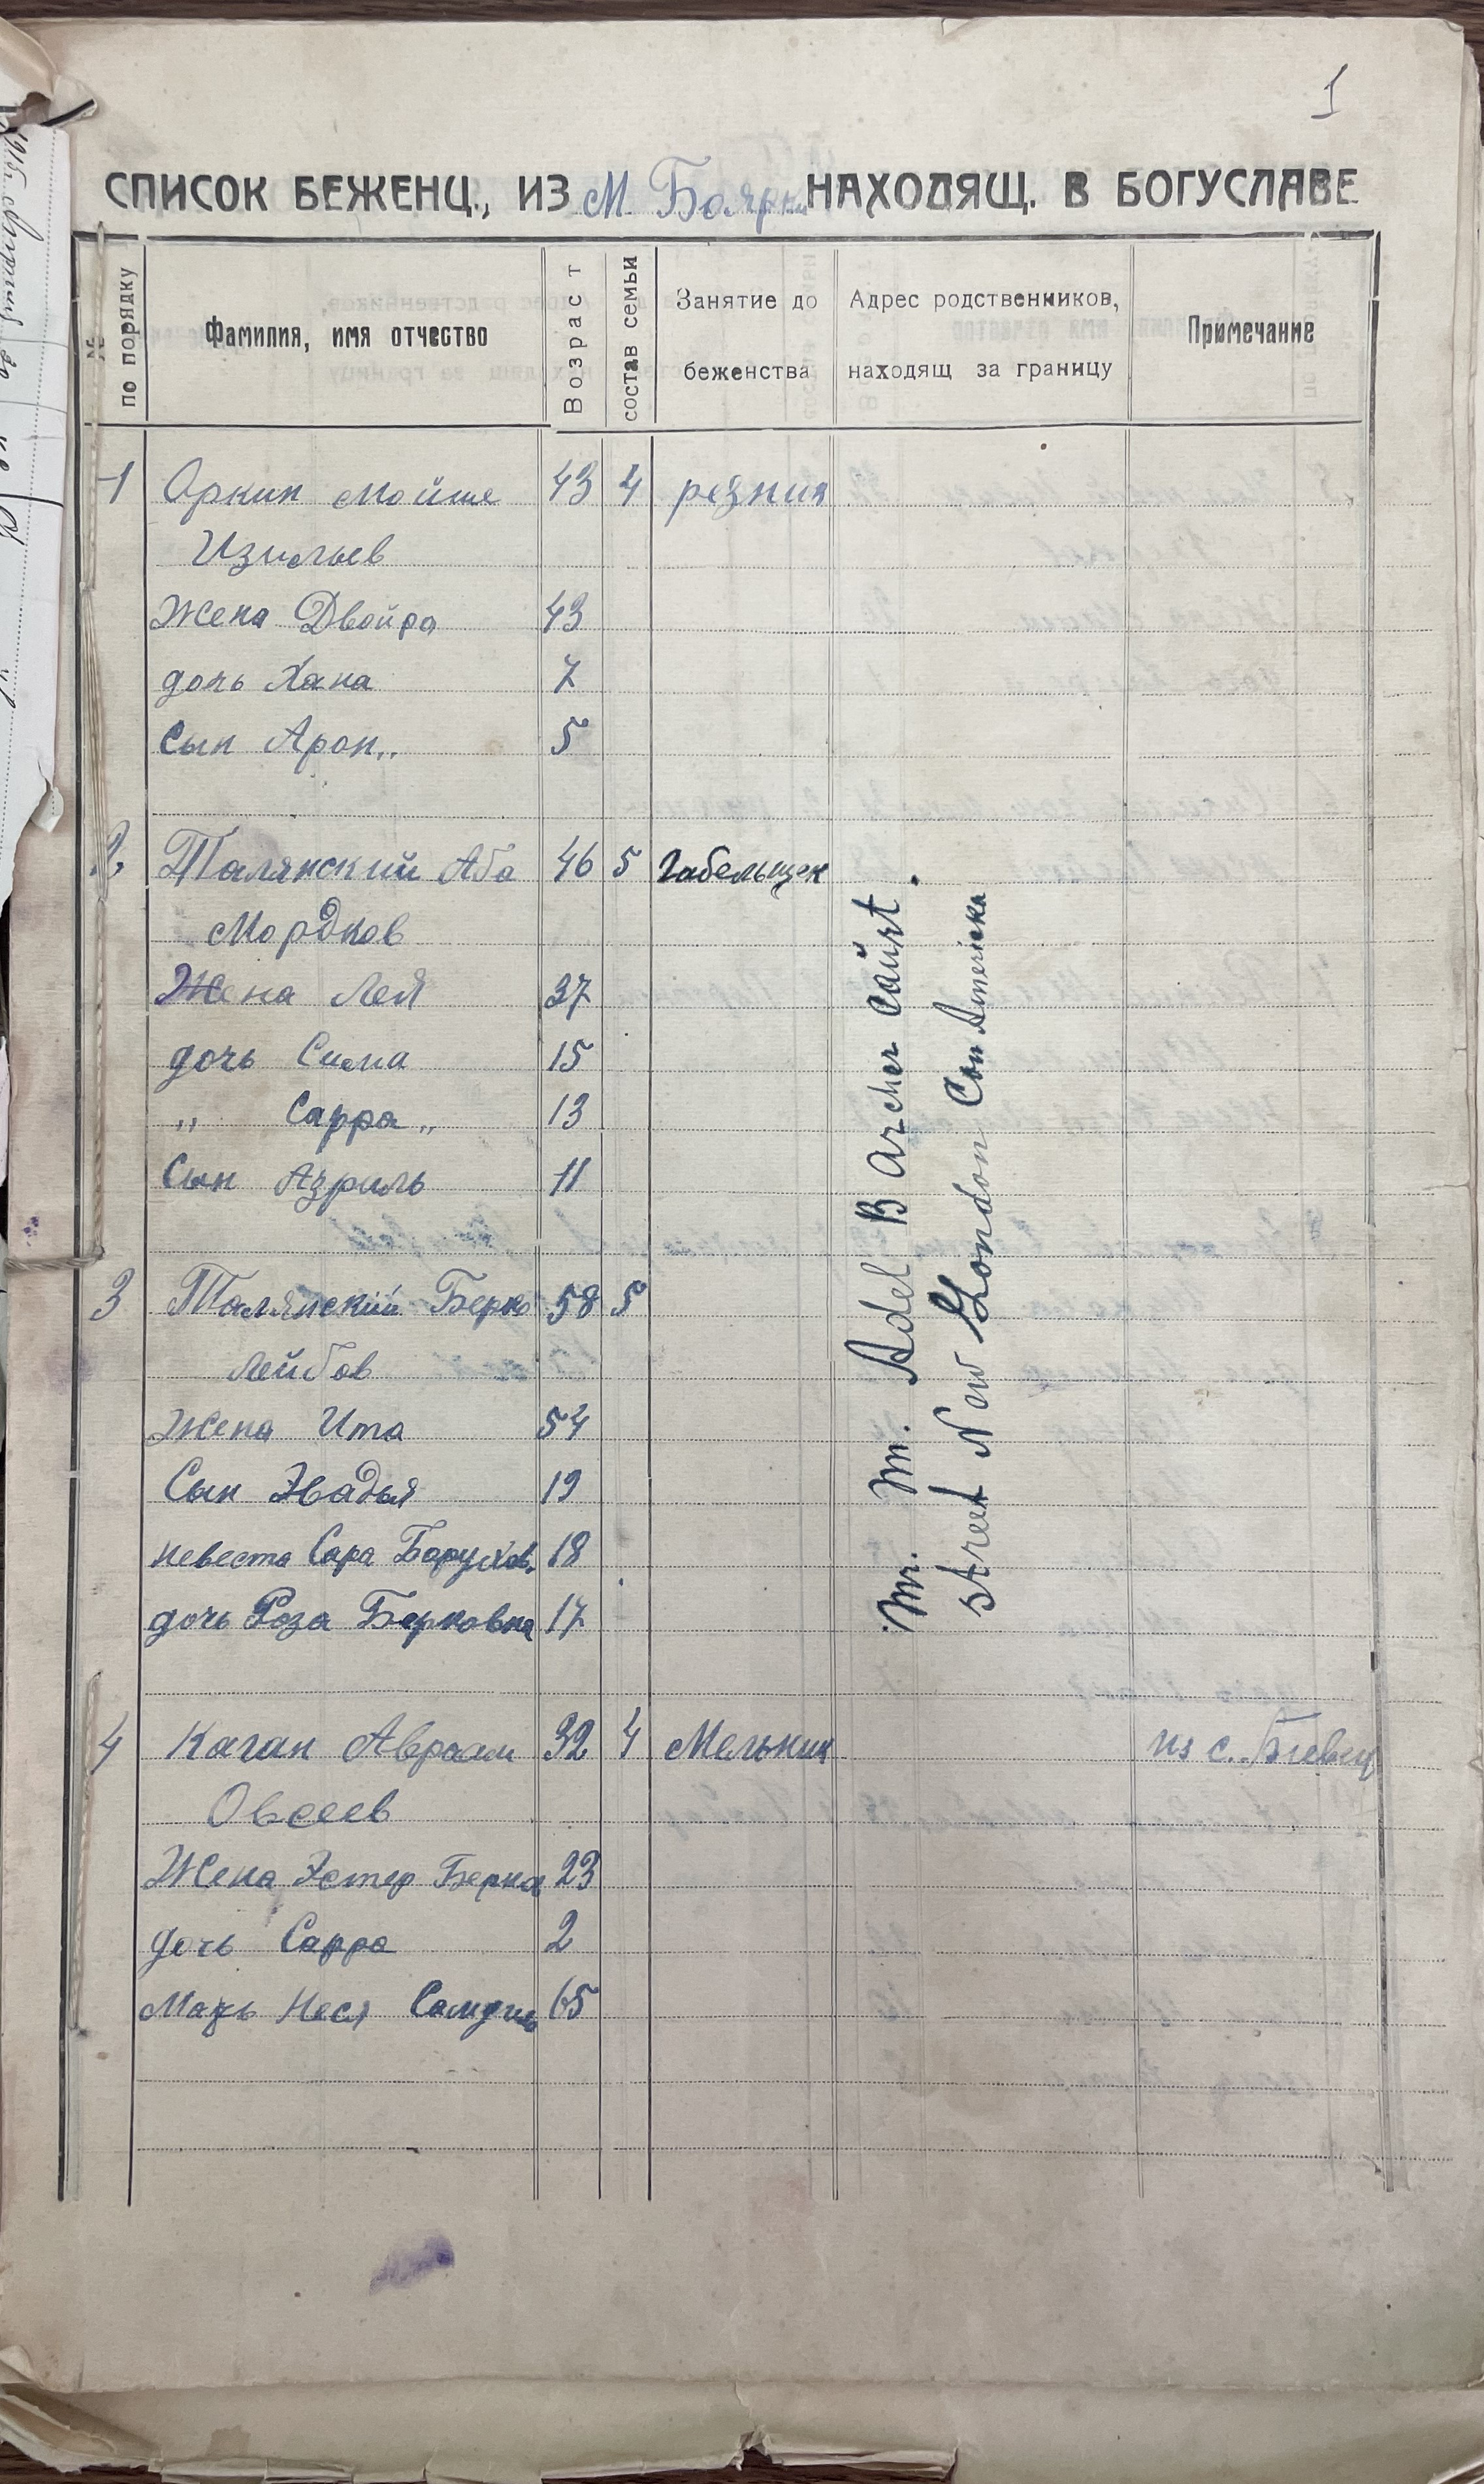 1
СПИСОК БЕЖЕНЦ., ИЗ м. Боярки НАХОДЯЩ. В БОГУСЛАВЕ
№ по порядку
Фамилия, имя отчество
Возраст
состав семьи
Занятие до беженства
Адрес родственников, находящ за границу
Примечание
1 Оркин Мойше 43 4 резник
Изильев
Жена Двойра 43
дочь Хана 7
Сын Арон „ 5
2 Талянский Аба 46 5 Габельщек
Мордков
Жена Лея 37
дочь Сима 15
„ Сарра „ 13
Сын Азриль 11
3 Талянский Берко 58 5
Лейбов
Жена Ита 54
Сын Эвадья 19
невеста Сара Борухов. 18
дочь Роза Берковна 17
Mr. M. Adel B Archer caйrt.
street New London Con America
4 Каган Авраам 32 4 Мельник из с.
Овсеев
Жена Эстер Берко 23
дочь Сарра 2
Мать Неся 65